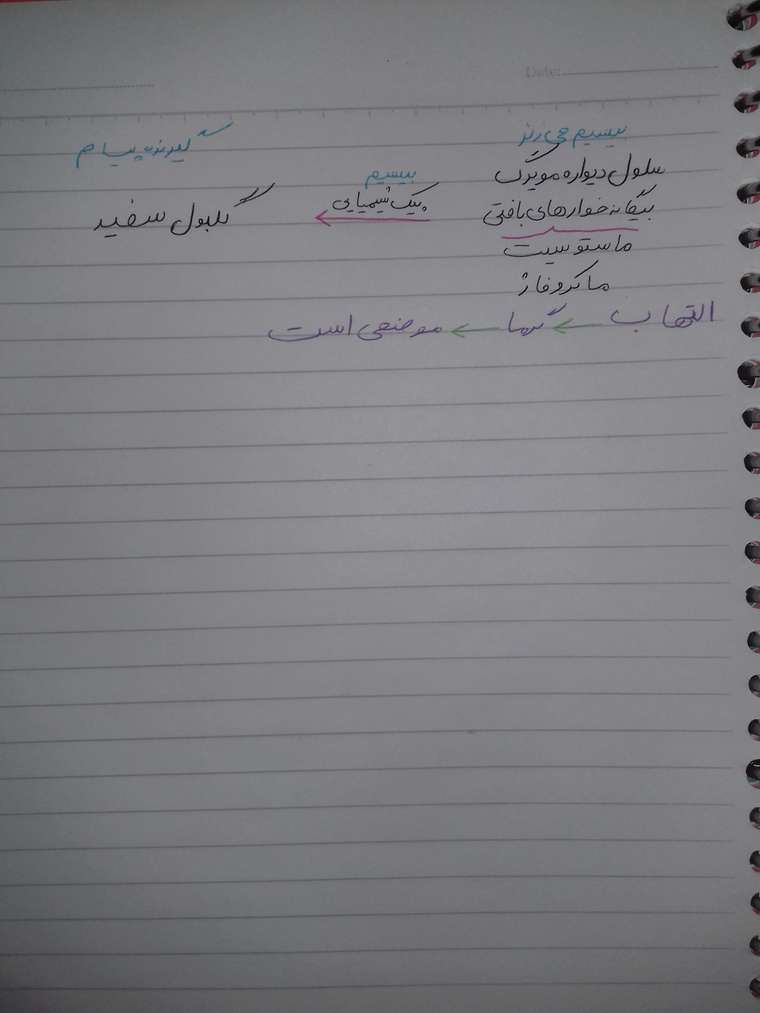 Date:
بیسیم چی زنز گیرنده پیام
سلول دیواره مویرگ بیسیم
بیگانه خوارهای بافتی پیک شیمیایی گلبول سفید
ماستوسیت
ماکروفاژ
التهاب گرما موضعی است